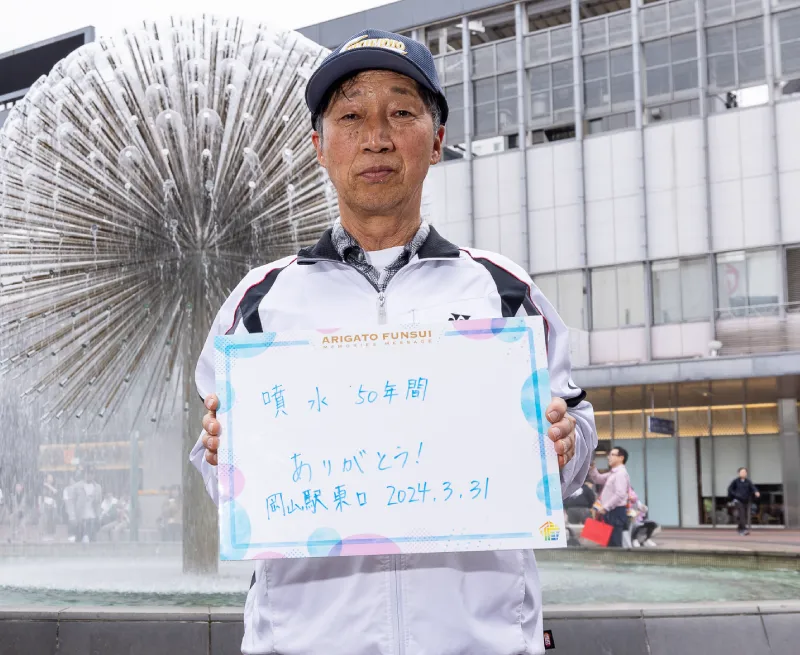 ARIGATO FUNSUI
MEMORIES MESSAGE
噴水 50年間
ありがとう!
岡山駅東口 2024.3.31